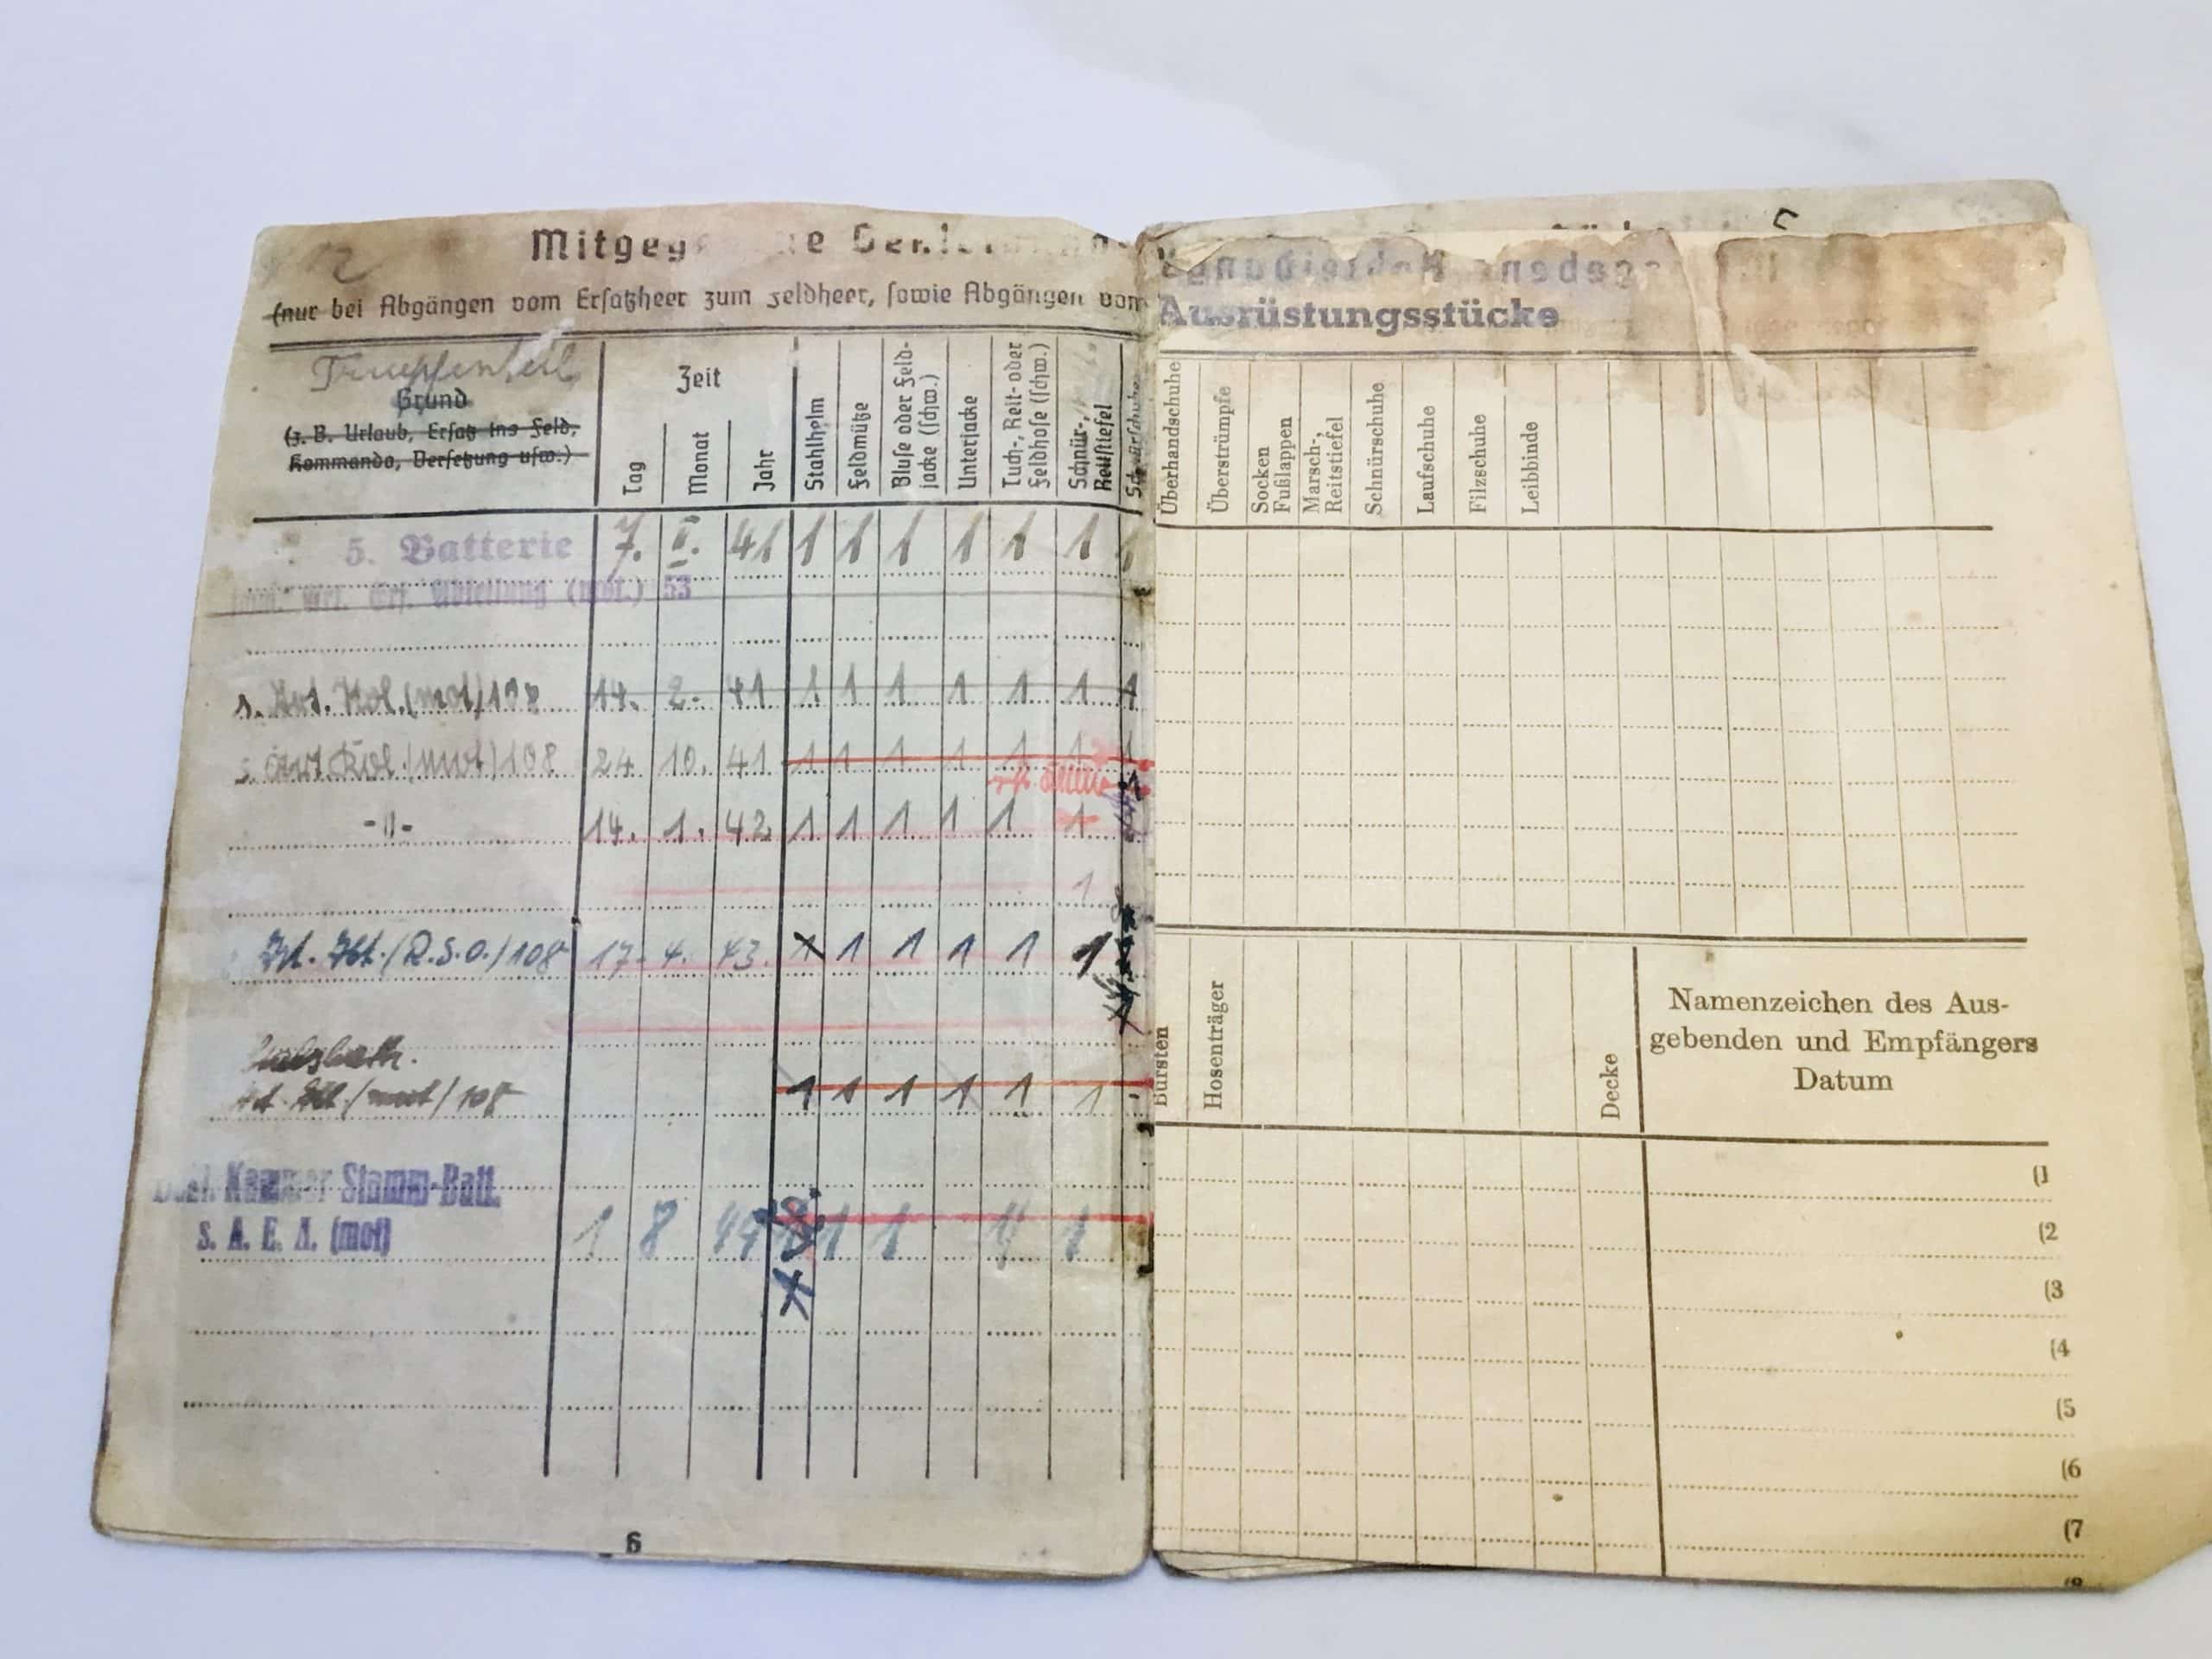 Mitgeg
(nur bei Abgängen vom Ersatzheer zum Feldheer, sowie Abgängen vom
Truppenteil
Grund
(z. B. Urlaub, Ersatz ins Feld,
Kommando, Versetzung usw.)
Zeit
Tag
Monat
Jahr
Stahlhelm
Feldmütze
Bluse oder Feld-
jacke (schw.)
Unterjacke
Tuch-, Reit- oder
Feldhose (schw.)
Schnür-,
Reitstiefel
Schnürschuhe
5. Batterie 7. I. 41 1 1 1 1 1 1 1
Art. Ers. Abteilung (mot.) 53
s. Art. Kol. (mot) 108 14. 2. 41 1 1 1 1 1 1 1
s. Art. Kol. (mot) 108 24. 10. 41 1 1 1 1 1 1 1
-"- 14. 1. 42. 1 1 1 1 1 1
1
(R.S.O.) 108 17. 4. 43. 1 1 1 1 1
(mot) 108 1 1 1 1 1 1
Kammer Stamm-Batt.
s. A. E. A. (mot) 1 8 44 1 1 1 1
6
Ausrüstungsstücke
Überhandschuhe
Überstrümpfe
Socken
Fußlappen
Marsch-,
Reitstiefel
Schnürschuhe
Laufschuhe
Filzschuhe
Leibbinde
Bürsten
Hosenträger
Decke
Namenzeichen des Aus-
gebenden und Empfängers
Datum
(1
(2
(3
(4
(5
(6
(7
(8